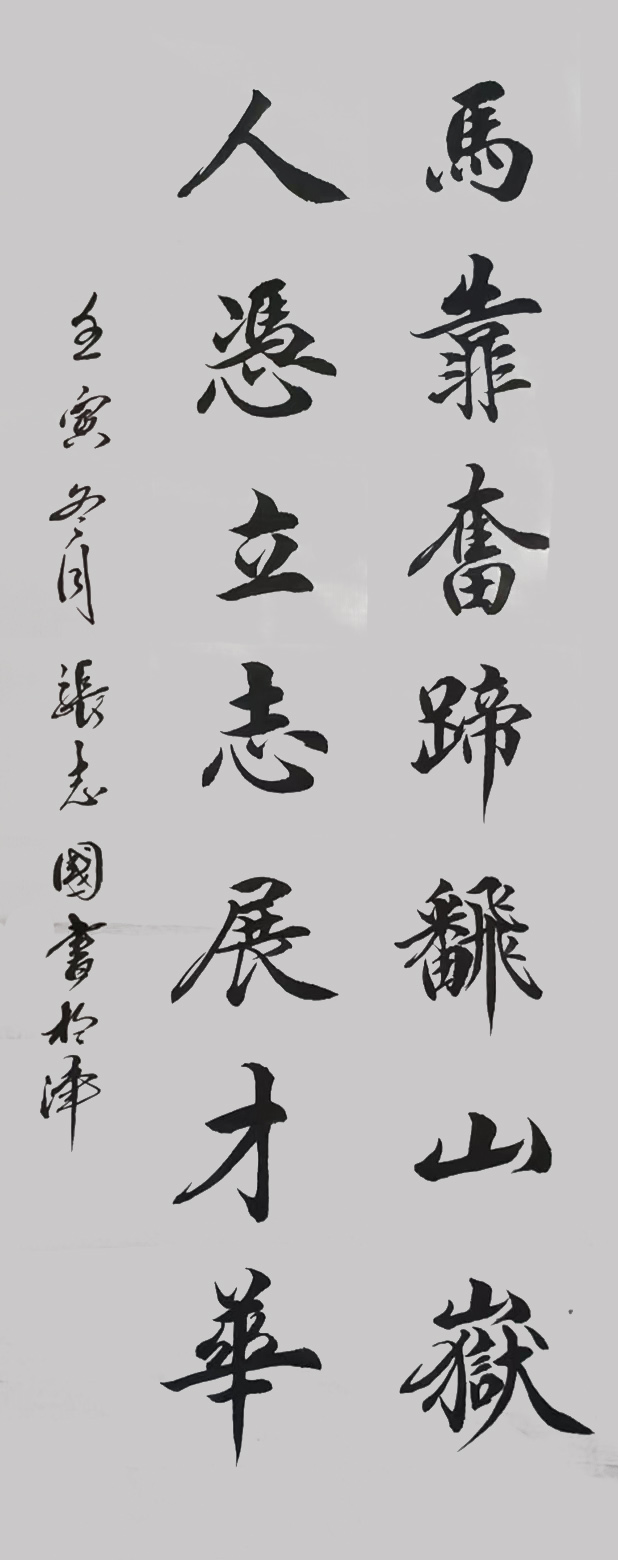 馬靠奮蹄飜山嶽
人憑立志展才華
壬寅冬月張志國書於津